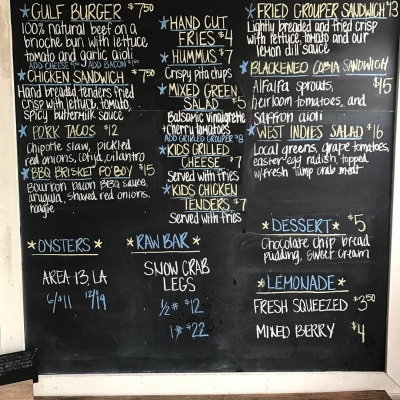 GULF BURGER $7.50
100% natural beef on a
brioche bun with lettuce
tomato and garlic aioli
ADD CHEESE ADD BACON
CHICKEN SANDWICH $7.50
Hand breaded tenders fried
crisp with lettuce, tomato,
spicy buttermilk sauce
PORK TACOS $12
Chipotle slaw, pickled
red onions, cotija, cilantro
BBQ BRISKET PO'BOY $15
Bourbon bacon BBQ sauce,
arugula, shaved red onions.
hoagie
HAND CUT
FRIES $4
HUMMUS $7
Crispy pita chips
MIXED GREEN
SALAD $5
Balsamic vinaigrette
+ cherry tomatoes
ADD GRILLED GROUPER $8
KIDS GRILLED
CHEESE $7
Served with fries
KIDS CHICKEN
TENDERS $7
Served with fries
FRIED GROUPER SANDWICH $13
Lightly breaded and fried crisp
with lettuce, tomato and our
lemon dill sauce
BLACKENED COBIA SANDWICH
$15
Alfalfa sprouts,
heirloom tomatoes, and
saffron aioli
WEST INDIES SALAD $16
Local greens, grape tomatoes,
easter egg radish, topped
w/fresh lump crab meat
OYSTERS
AREA 13, LA
6/$11 12/19
RAW BAR
SNOW CRAB
LEGS
1/2# $12
1# $22
DESSERT $5
Chocolate chip bread
pudding, sweet cream
LEMONADE
FRESH SQUEEZED $3.50
MIXED BERRY $4